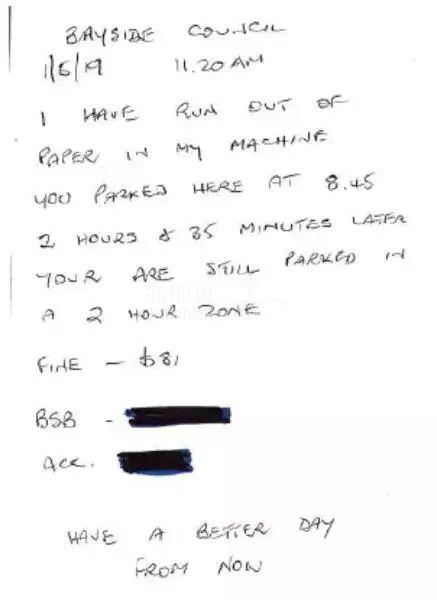 BAYSIDE COUNCIL
1/5/19 11.20AM
I HAVE RUN OUT OF
PAPER IN MY MACHINE
YOU PARKED HERE AT 8.45
2 HOURS & 35 MINUTES LATER
YOUR ARE STILL PARKED IN
A 2 HOUR ZONE
FINE - $81
BSB -
ACC.
HAVE A BETTER DAY
FROM NOW